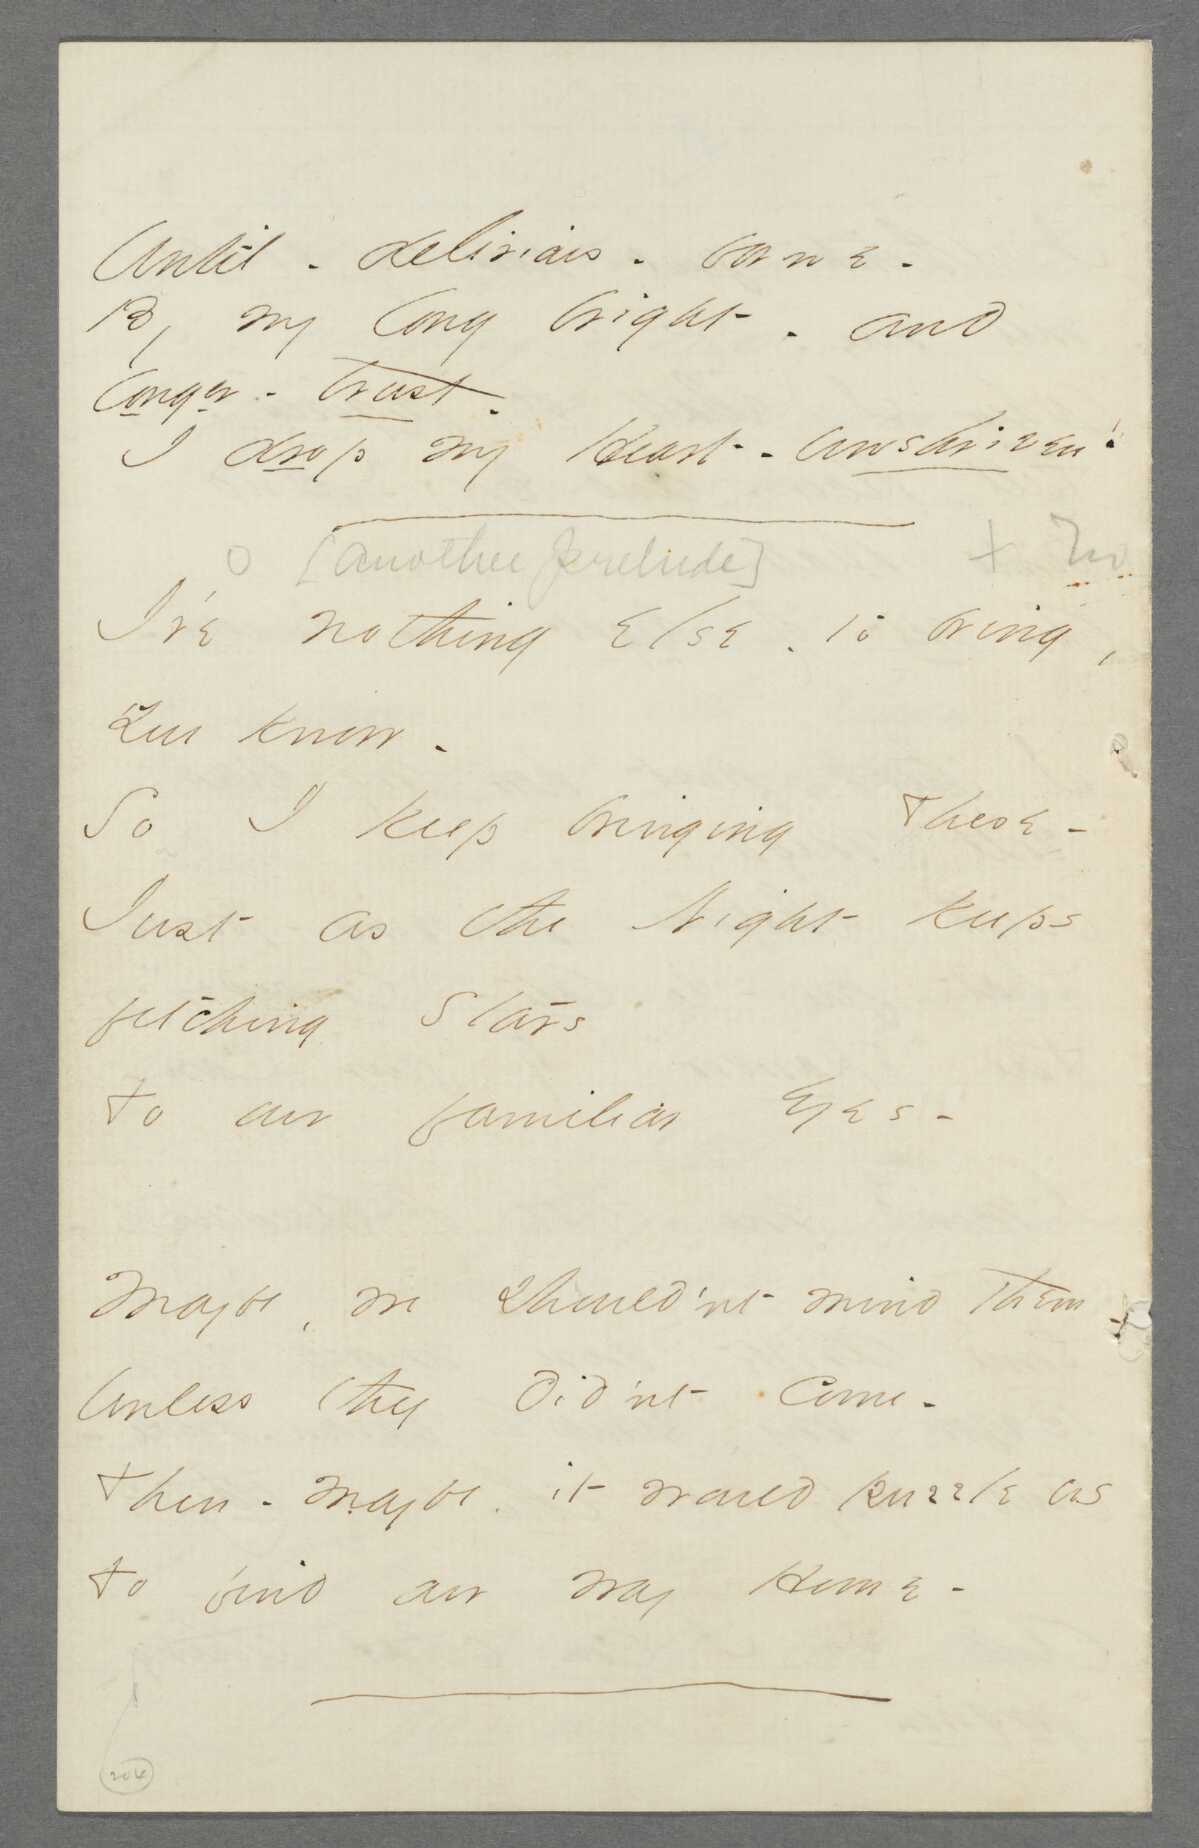 Until - delirious - borne -
By my long bright - and
longer - trust -
I drop my Heart - unshriven!
o [another prelude] + Two
I've nothing Else - to bring,
You know -
So I keep bringing These -
Just as the Night keeps
fetching Stars
To our familiar Eyes -
Maybe, we should'nt mind them -
Unless they did'nt come -
Then - maybe, it would puzzle us
To find our way Home -
204